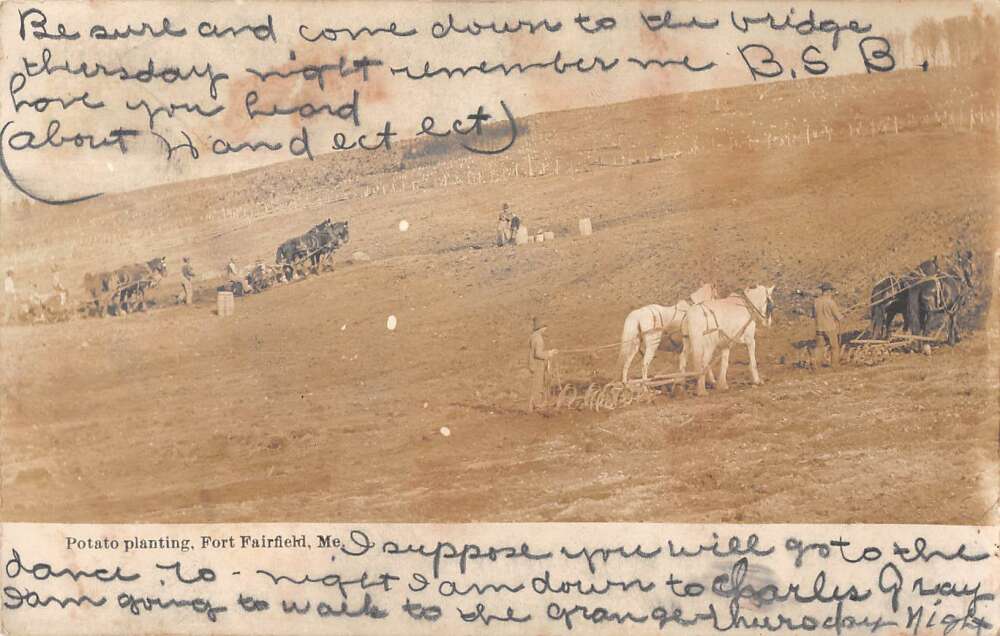 Be sure and come down to the bridge
thursday night remember me B. S B.
have you heard
(about Hand ect ect)
Potato planting, Fort Fairfield, Me. I suppose you will go to the
dance to-night I am down to Charles Gray
I am going to walk to the grange thursday Night